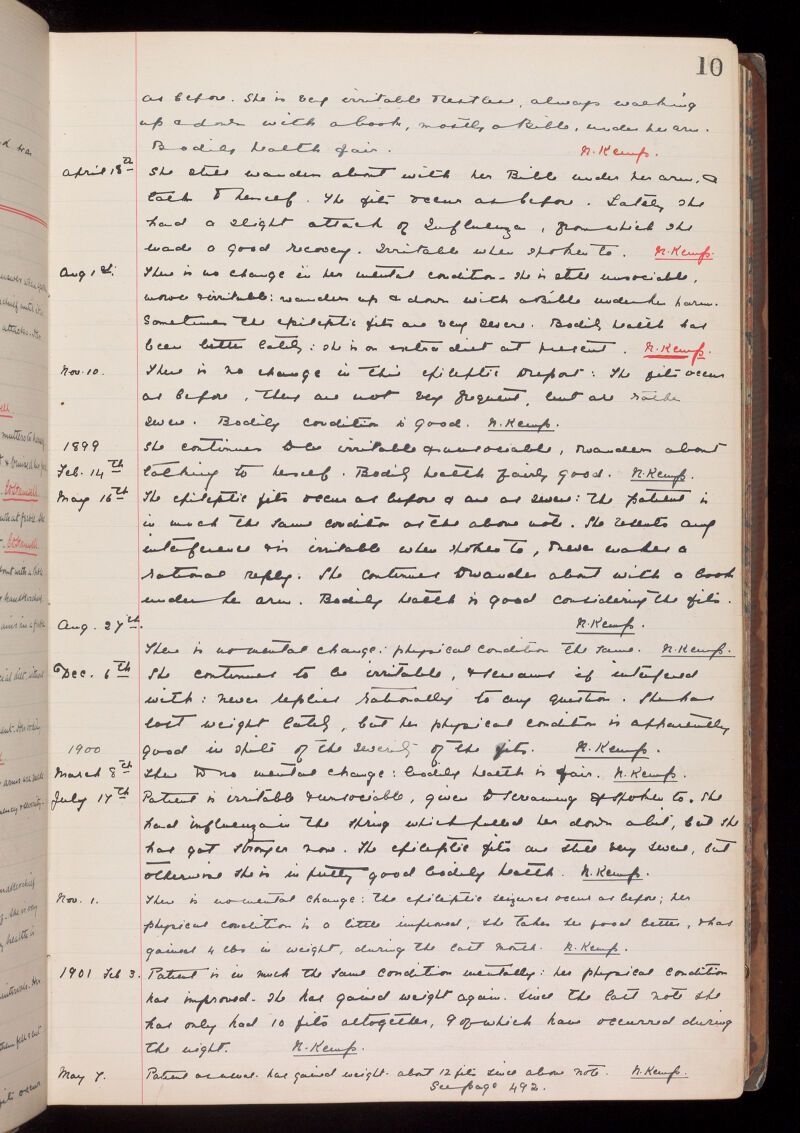 10
as before. She is very irritable & restless, always walking
up & down with a book, mostly a Bible, under her arm.
Bodily health fair. N. Kemp.
April 18th She still wanders about with her Bible under her arm, &
talk to herself. The fits occur as before. Lately she
had a slight attack of Influenza, from which she
made a good recovery. Irritable when spoken to. N. Kemp.
Aug 1st. There is no change in her mental condition - she is still unsociable,
morose & irritable: wanders up & down with a Bible under her arm.
Sometimes the epileptic fits are very severe. Bodily health has
been better lately: she is on extra diet at present. N. Kemp.
Nov. 10. There is no change in this epileptic to report: The fits occur
as before, they are not very frequent, but are rather
severe. Bodily condition is good. N. Kemp.
1899 She continues to be irritable & unsociable, & wanders about
Feb. 14th talking to herself. Bodily health fairly good. N. Kemp.
May 16th The epileptic fits occur as before & are as severe: the patient is
in much the same condition as the above note. She resents any
interference & is irritable when spoken to, & never makes a
rational reply. She continues to wander about with a book
under her arm. Bodily health is good considering the fits.
Aug. 27th. N. Kemp.
There is no mental change: physical condition the same. N. Kemp.
Dec. 6th She continues to be irritable, & screams if interfered
with: never replies rationally to any question. She has
lost weight lately, but her physical condition is apparently
1900 good in spite of the severity of the fits. N. Kemp.
March 8th There is no mental change: bodily health is fair. N. Kemp.
July 17th Patient is irritable & unsociable, given to screaming if spoken to. She
had influenza in the spring which pulled her down a bit, but she
has got stronger now. The epileptic fits are still very severe, but
otherwise she is in pretty good bodily health. N. Kemp.
Nov. 1. There is no mental change: the epileptic seizures occur as before; her
physical condition is a little improved, she takes her food better, & has
gained 4 lbs in weight, during the last month. N. Kemp.
1901 Feb 3. Patient is in much the same condition mentally: her physical condition
has improved - she has gained weight again. Since the last note she
has only had 10 fits altogether, 9 of which have occurred during
the night. N. Kemp.
May 7. Patient as usual - has gained weight - about 12 fits since above note. N. Kemp.
See page 492.